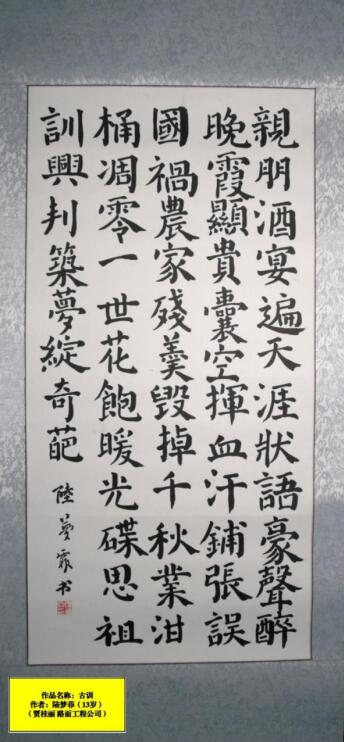 親朋酒宴遍天涯狀語豪聲醉
晚霞顯貴囊空揮血汗鋪張誤
國禍農家殘羹毀掉千秋業泔
桶凋零一世花飽暖光碟思祖
訓興邦築夢綻奇葩
陸夢霏书
作品名称：古训
作者：陆梦霏（13岁）
（贾桂丽 路面工程公司）